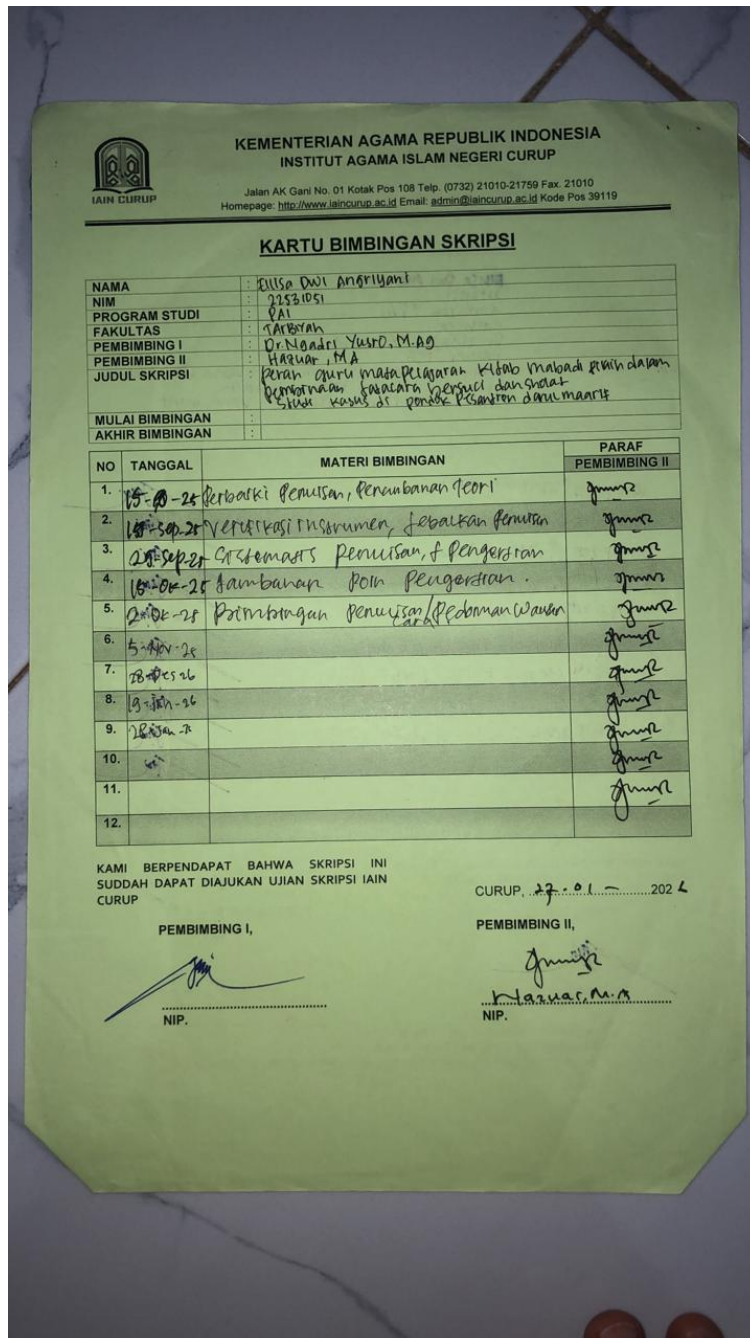 IAIN CURUP
KEMENTERIAN AGAMA REPUBLIK INDONESIA
INSTITUT AGAMA ISLAM NEGERI CURUP
Jalan AK Gani No. 01 Kotak Pos 108 Telp. (0732) 21010-21759 Fax. 21010
Homepage: http://www.iaincurup.ac.id Email: admin@iaincurup.ac.id Kode Pos 39119
KARTU BIMBINGAN SKRIPSI
NAMA : Ellisa Dwi Angriyani
NIM : 22531051
PROGRAM STUDI : PAI
FAKULTAS : TArbiyah
PEMBIMBING I : Dr. Ngadri Yusro, M.Ag
PEMBIMBING II : Hazuar, MA
JUDUL SKRIPSI : Peran guru mata pelajaran Kitab mabadi fiqih dalam
pembinaan tatacara bersuci dan sholat
studi kasus di pondok Pesantren darul maarif
MULAI BIMBINGAN :
AKHIR BIMBINGAN :
NO TANGGAL MATERI BIMBINGAN PARAF
PEMBIMBING II
1. Perbaiki Penulisan, Penambahan Teori
2. Sep-25 Verifikasi Instrumen, Penulisan
3. Sep-25 Sistematis Penulisan, Pengertian
4. Ok-25 tambahan Poin Pengertian.
5. Bimbingan Penulisan/Pedoman Wawan
cara
6. 5-Nov-25
7. 28-Des
8. 19-Jan-26
9. 28-Jan
10.
11.
12.
KAMI BERPENDAPAT BAHWA SKRIPSI INI
SUDDAH DAPAT DIAJUKAN UJIAN SKRIPSI IAIN
CURUP
CURUP, 27-01-2026
PEMBIMBING I,
PEMBIMBING II,
Hazuar, M.A
NIP.
NIP.